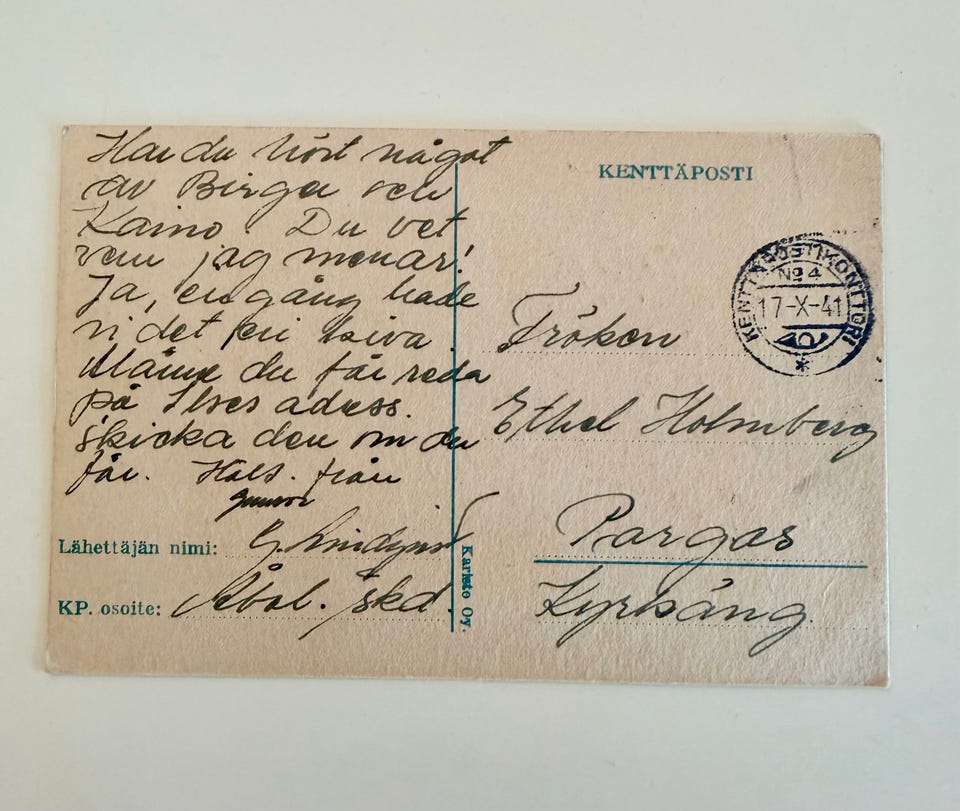 Har du hört något
av Birger och
Kaino. Du vet
vem jag menar!
Ja, en gång hade
vi det
du får reda
på adress.
skicka den om du
får. Häls. från
Gunvor
Lähettäjän nimi: G. Lindqvist
KP. osoite: skd.
Karisto Oy.
KENTTÄPOSTI
KENTTÄPOSTIKONTTORI
No 4
17-X-41
Fröken
Ethel Holmberg
Pargas
Kyrkäng